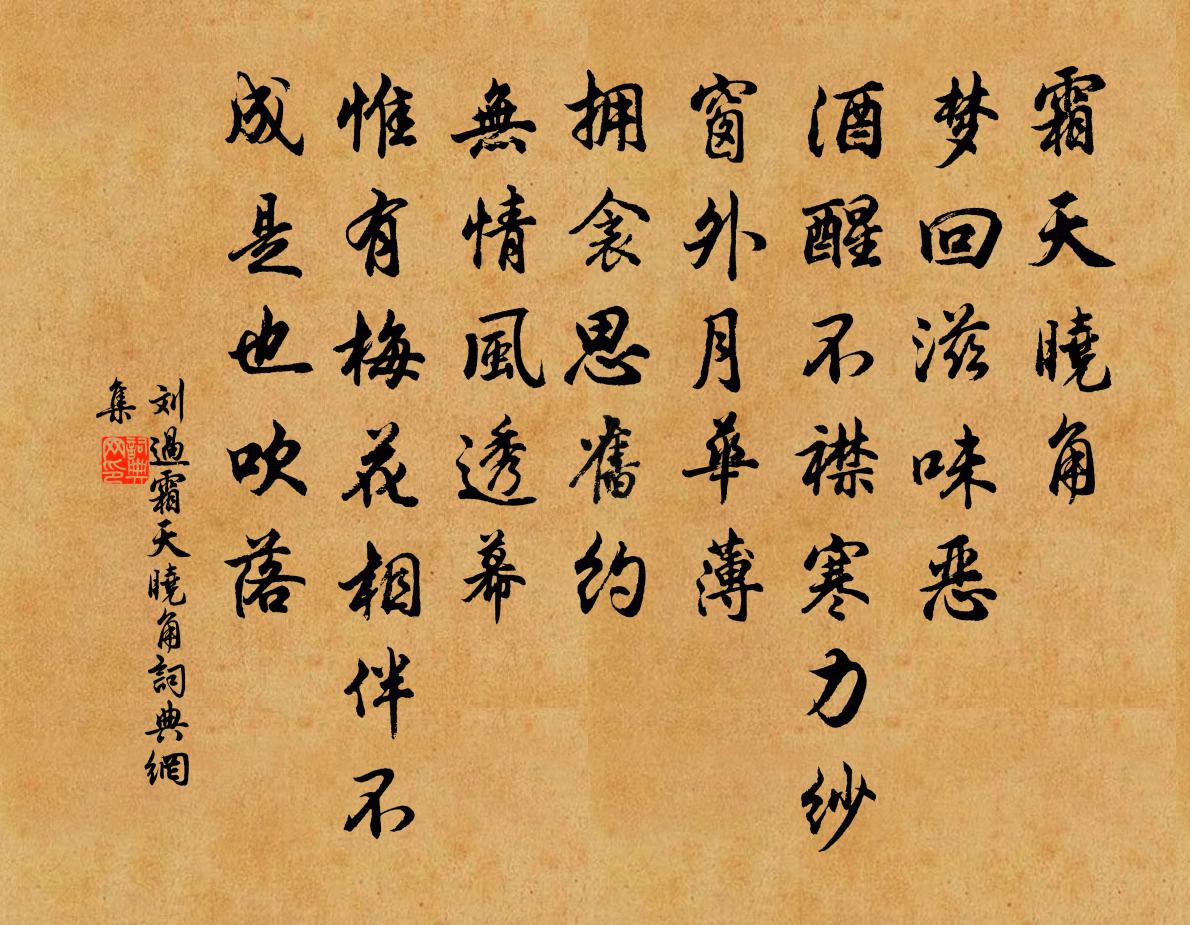 霜天曉角
梦回滋味恶
酒醒不襟寒力纱
窗外月華薄
拥衾思舊约
無情風透幕
惟有梅花相伴不
成是也吹落
刘過霜天曉角詞典網
集
詞典網印